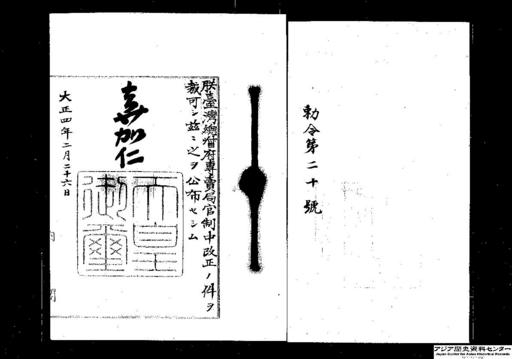 勅令第二十號
朕臺灣總督府專賣局官制中改正ノ件ヲ
裁可シ茲ニ之ヲ公布セシム
嘉仁
天皇
御璽
大正四年二月二十六日
内閣
アジア歴史資料センター
Japan Center for Asian Historical Records